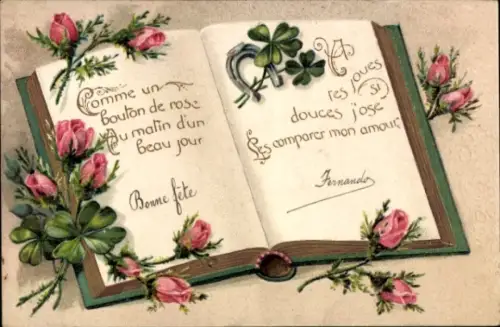 Comme un
bouton de rose
Au matin d'un
beau jour
Bonne fête
A
tes joues
si
douces j'ose
Les comparer mon amour
Fernando